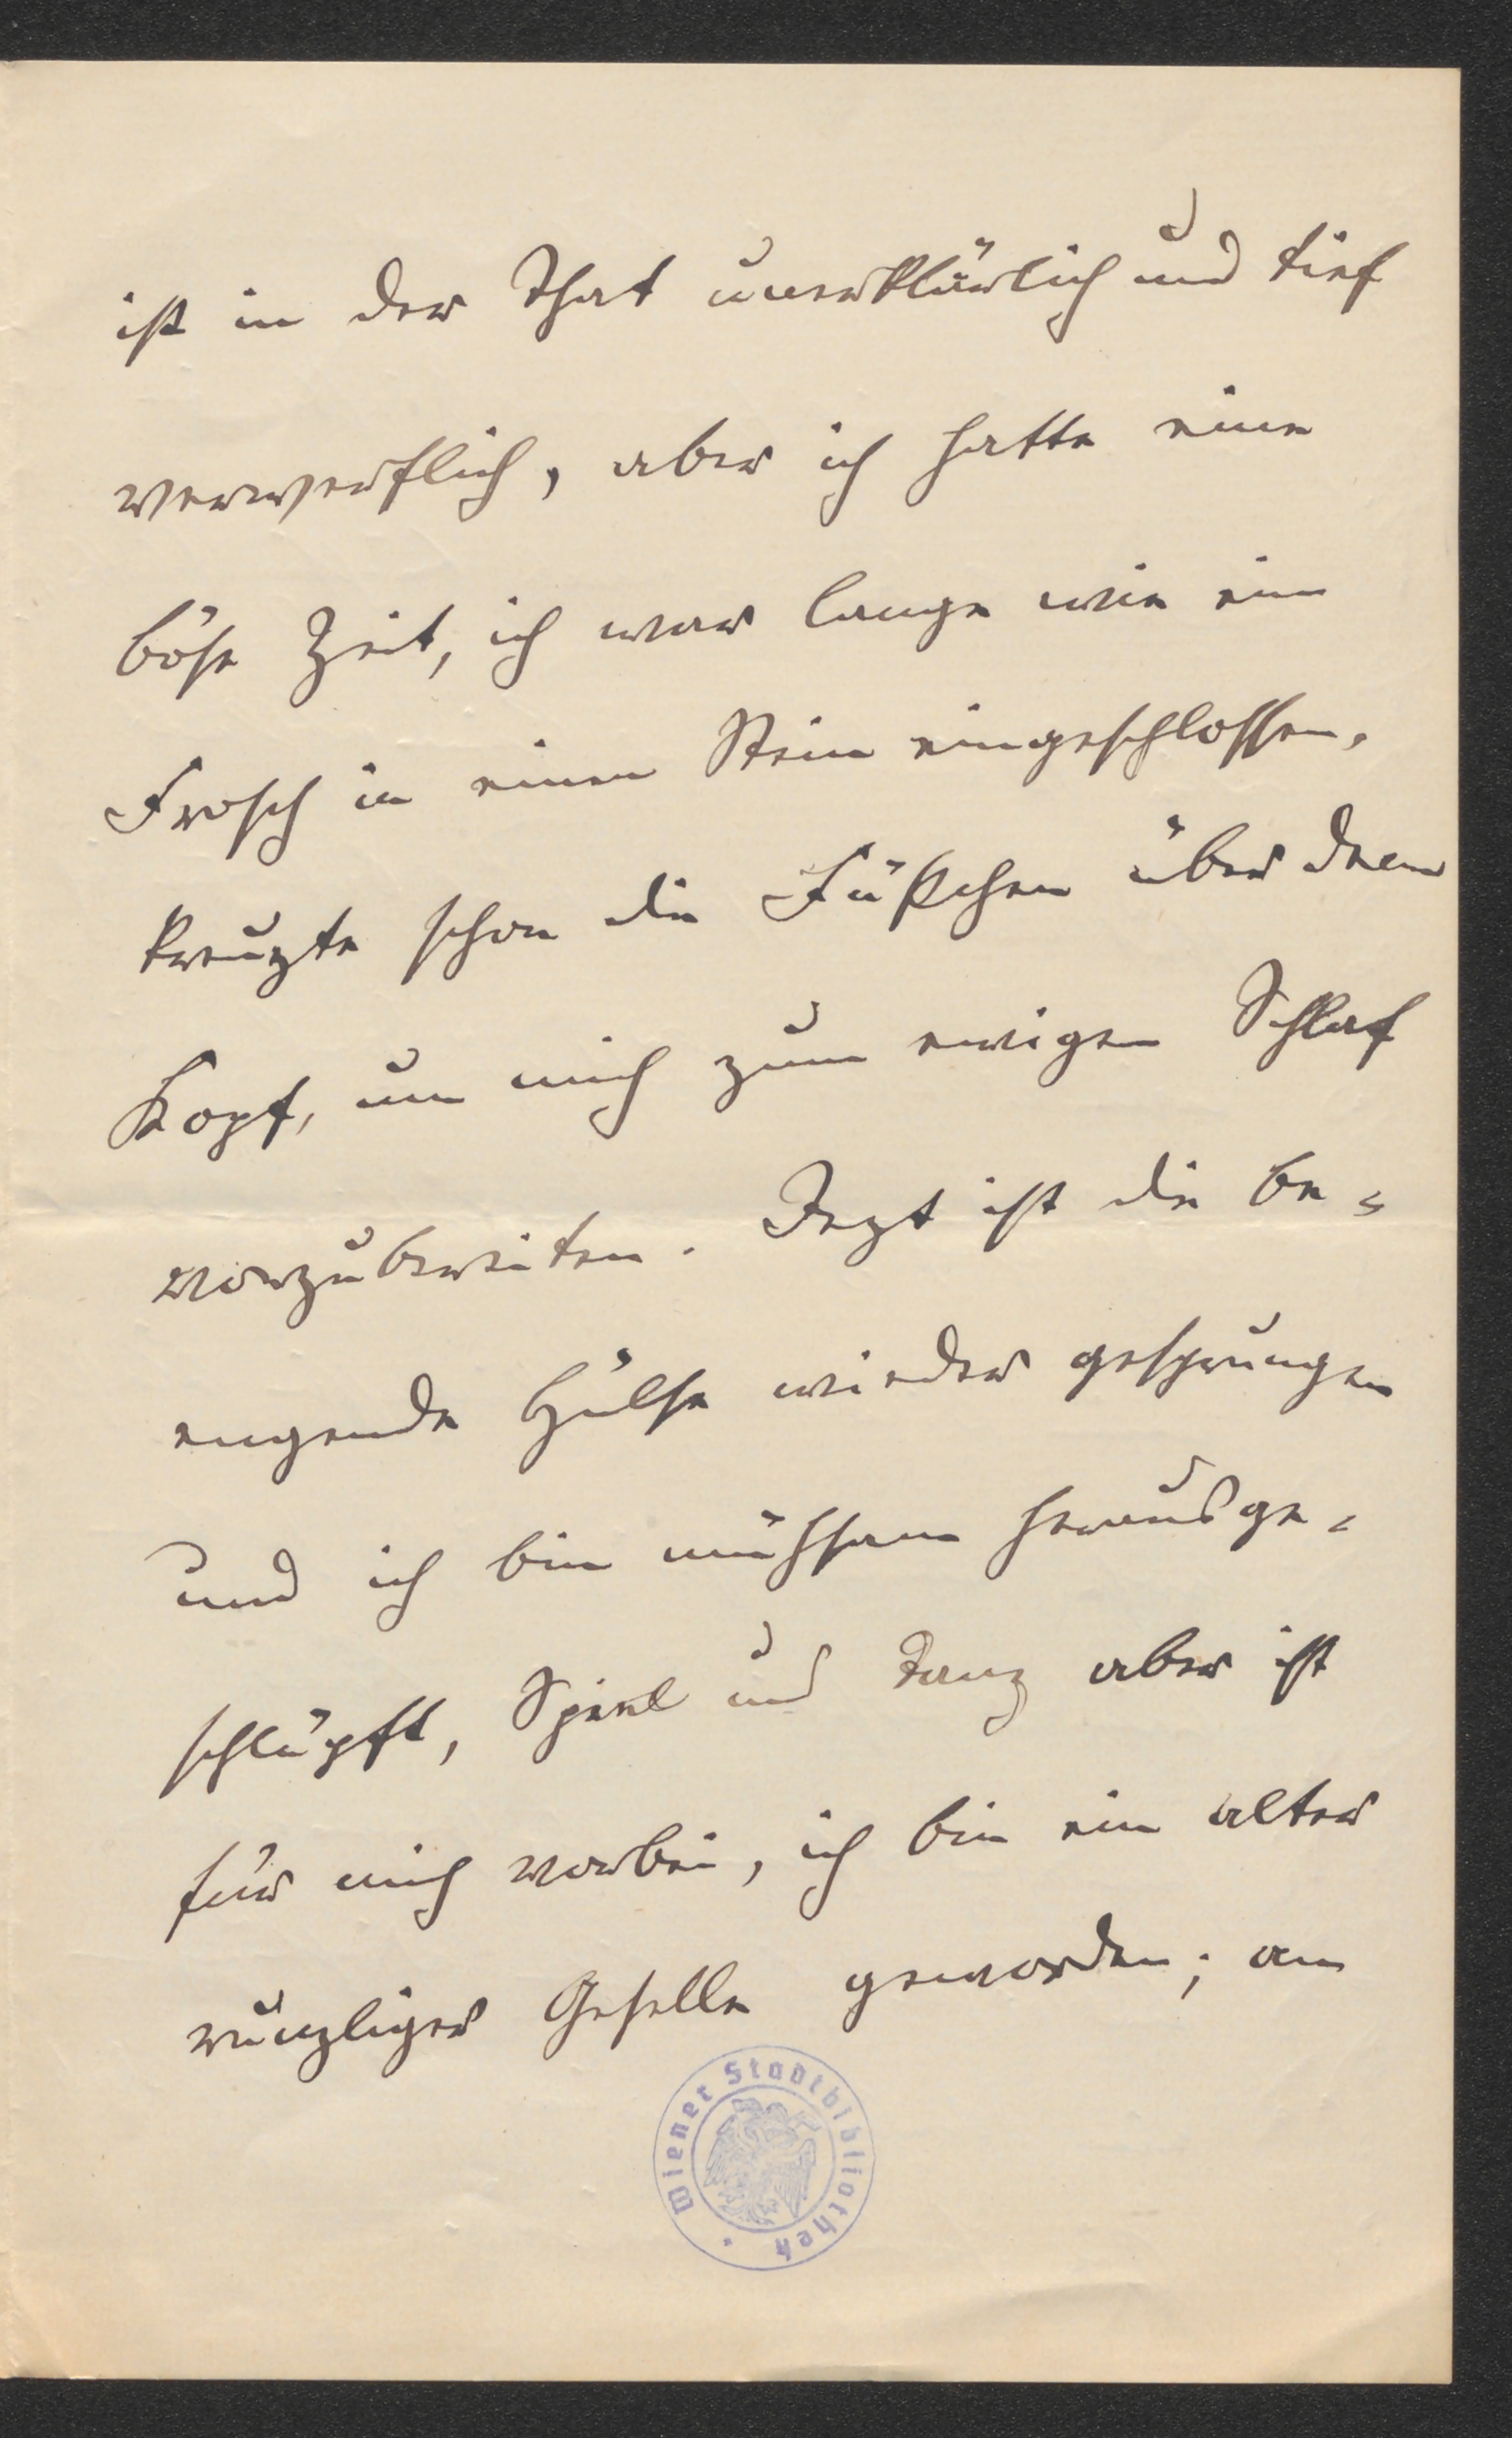 ist in der That unerklärlich und tief
verwerflich, aber ich hatte eine
böse Zeit, ich war lange wie ein
Frosch in einen Stein eingeschlossen,
kreuzte schon die Füßchen über dem
Kopf, um mich zum ewigen Schlaf
vorzubereiten. Jezt ist die be-
engende Hülse wieder gesprungen
und ich bin mühsam herausge-
schlüpft, Spiel und Tanz aber ist
für mich vorbei, ich bin ein alter
runzliger Geselle geworden; am
Wiener Stadtbibliothek